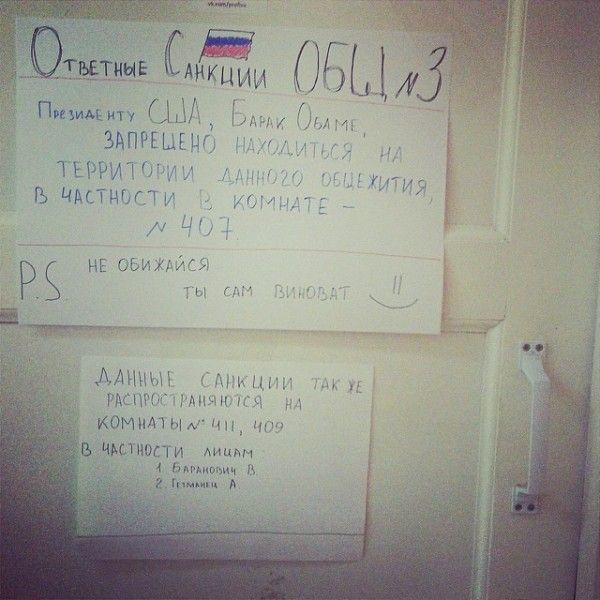 Ответные Санкции ОБЩ №3
Президенту США, Барак Обаме,
ЗАПРЕЩЕНО НАХОДИТЬСЯ НА
ТЕРРИТОРИИ ДАННОГО ОБЩЕЖИТИЯ,
В ЧАСТНОСТИ В КОМНАТЕ –
№ 407.
P.S. НЕ ОБИЖАЙСЯ
ТЫ САМ ВИНОВАТ
ДАННЫЕ САНКЦИИ ТАК ЖЕ
РАСПРОСТРАНЯЮТСЯ НА
КОМНАТЫ № 411, 409
В ЧАСТНОСТИ ЛИЦАМ
1. Баранович В.
2. Гетманец А